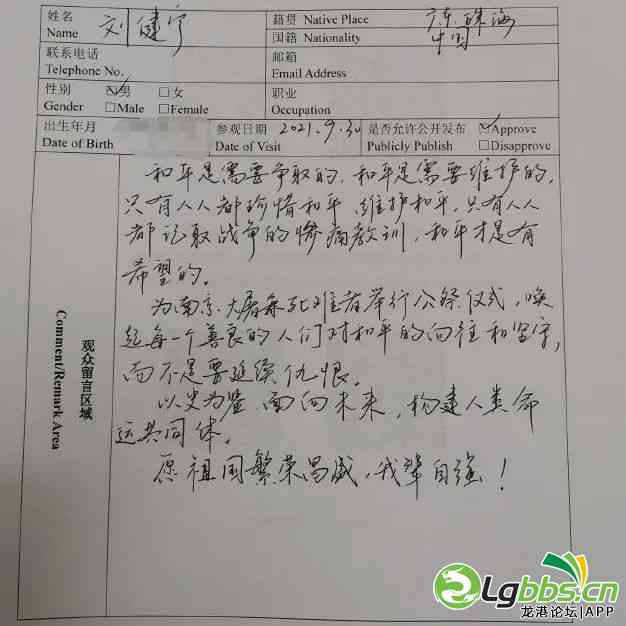 姓名 刘健宁 籍贯 Native Place 广东珠海
Name 国籍 Nationality 中国
联系电话 邮箱
Telephone No. Email Address
性别 ☑男 □女 职业
Gender □Male □Female Occupation
出生年月 参观日期 2021.9.30 是否允许公开发布 ☑Approve
Date of Birth Date of Visit Publicly Publish □Disapprove
观众留言区域
Comment/Remark Area
和平是需要争取的，和平是需要维护的，
只有人人都珍惜和平 维护和平，只有人人
都记取战争的惨痛教训，和平才是有
希望的。
为南京大屠杀死难者举行公祭仪式，唤
起每一个善良的人们对和平的向往和坚守，
而不是要延续仇恨。
以史为鉴 面向未来，构建人类命
运共同体。
愿祖国繁荣昌盛，我辈自强！
Lgbbs.cn
龙港论坛|APP